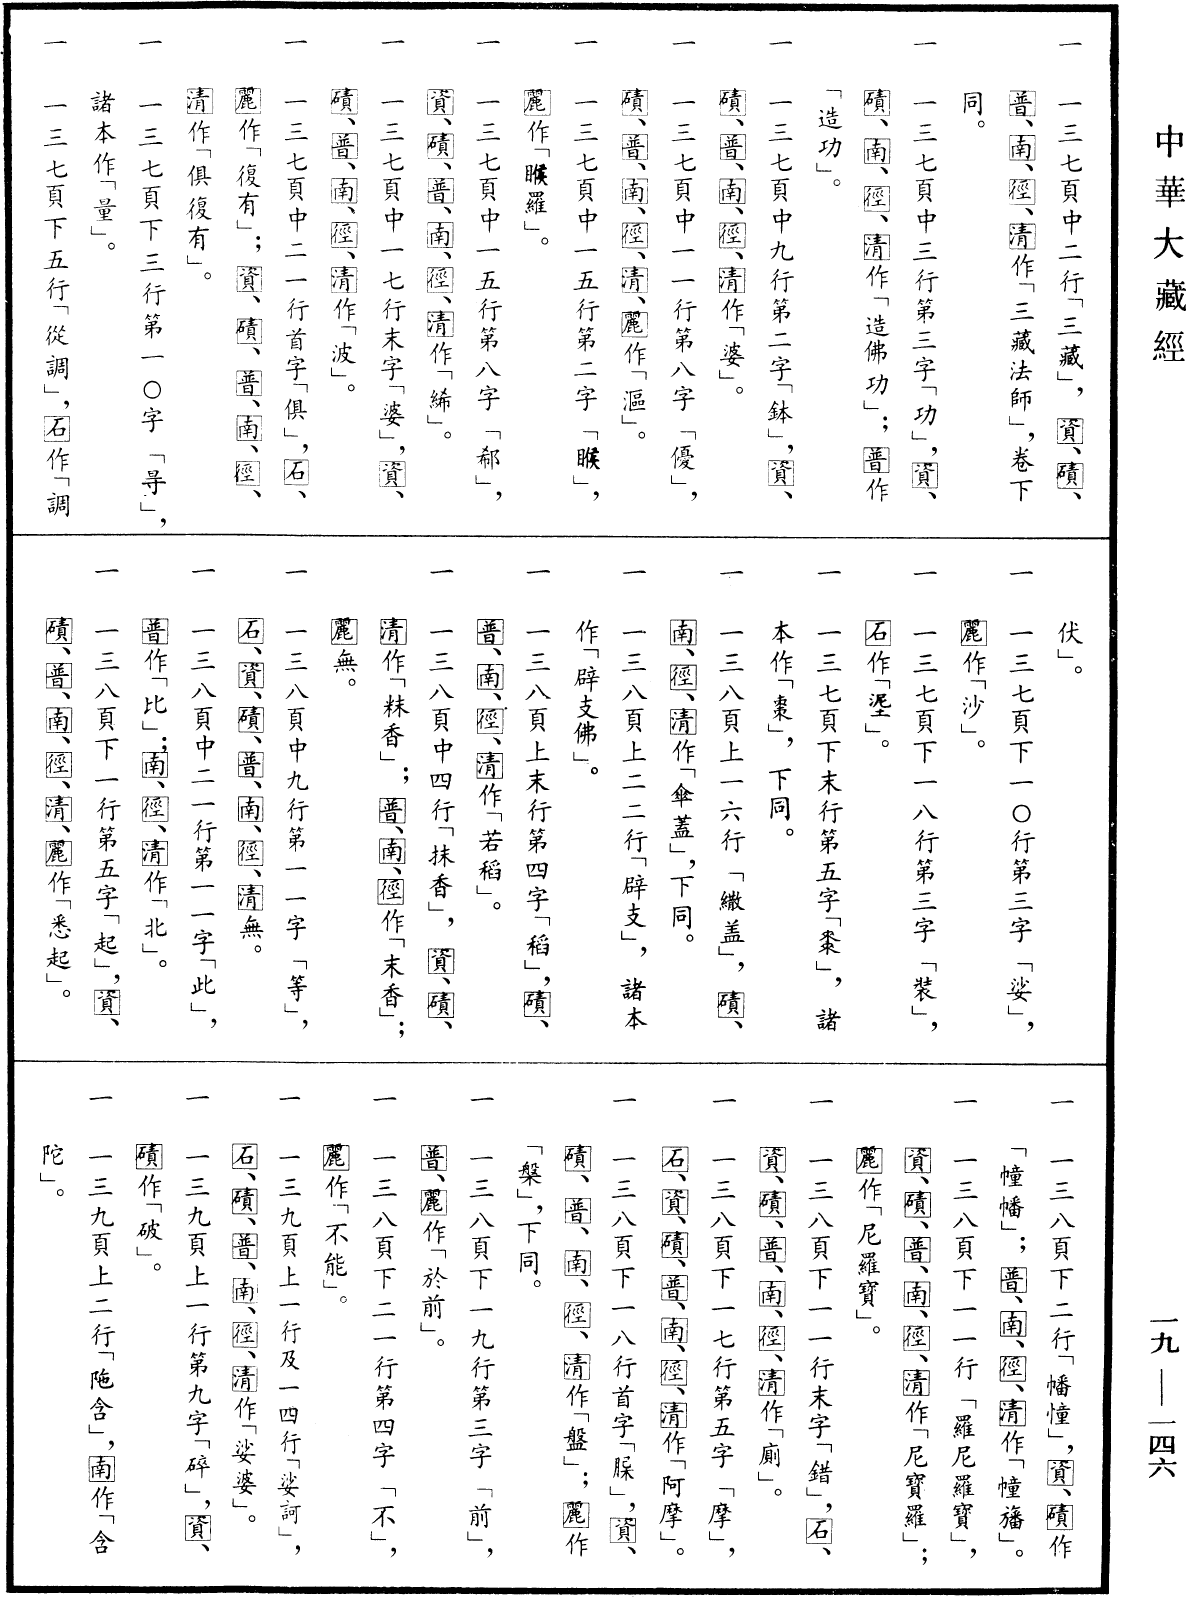 中華大藏經
一 一三七頁中二行「三藏」，資、磧、
普、南、徑、清作「三藏法師」，卷下
同。
一 一三七頁中三行第三字「功」，資、
磧、南、徑、清作「造佛功」；普作
「造功」。
一 一三七頁中九行第二字「鉢」，資、
磧、普、南、徑、清作「婆」。
一 一三七頁中一一行第八字「優」，
磧、普、南、徑、清、麗作「漚」。
一 一三七頁中一五行第二字「睺」，
麗作「睺羅」。
一 一三七頁中一五行第八字「郗」，
資、磧、普、南、徑、清作「絺」。
一 一三七頁中一七行末字「婆」，資、
磧、普、南、徑、清作「波」。
一 一三七頁中二一行首字「俱」，石、
麗作「復有」；資、磧、普、南、徑、
清作「俱復有」。
一 一三七頁下三行第一〇字「㝵」，
諸本作「量」。
一 一三七頁下五行「從調」，石作「調
伏」。
一 一三七頁下一〇行第三字「娑」，
麗作「沙」。
一 一三七頁下一八行第三字「裝」，
石作「埿」。
一 一三七頁下末行第五字「棗」，諸
本作「棗」，下同。
一 一三八頁上一六行「繖盖」，磧、
南、徑、清作「傘蓋」，下同。
一 一三八頁上二二行「辟支」，諸本
作「辟支佛」。
一 一三八頁上末行第四字「稻」，磧、
普、南、徑、清作「若稻」。
一 一三八頁中四行「抹香」，資、磧、
清作「粖香」；普、南、徑作「末香」；
麗無。
一 一三八頁中九行第一一字「等」，
石、資、磧、普、南、徑、清無。
一 一三八頁中二一行第一一字「此」，
普作「比」；南、徑、清作「北」。
一 一三八頁下一行第五字「起」，資、
磧、普、南、徑、清、麗作「悉起」。
一 一三八頁下二行「幡憧」，資、磧作
「幢幡」；普、南、徑、清作「幢旛」。
一 一三八頁下一一行「羅尼羅寶」，
資、磧、普、南、徑、清作「尼寶羅」；
麗作「尼羅寶」。
一 一三八頁下一一行末字「錯」，石、
資、磧、普、南、徑、清作「廁」。
一 一三八頁下一七行第五字「摩」，
石、資、磧、普、南、徑、清作「阿摩」。
一 一三八頁下一八行首字「𦟛」，資、
磧、普、南、徑、清作「盤」；麗作
「槃」，下同。
一 一三八頁下一九行第三字「前」，
普、麗作「於前」。
一 一三八頁下二一行第四字「不」，
麗作「不能」。
一 一三九頁上一行及一四行「娑訶」，
石、磧、普、南、徑、清作「娑婆」。
一 一三九頁上一行第九字「碎」，資、
磧作「破」。
一 一三九頁上二行「陁含」，南作「含
陀」。
一九—一四六